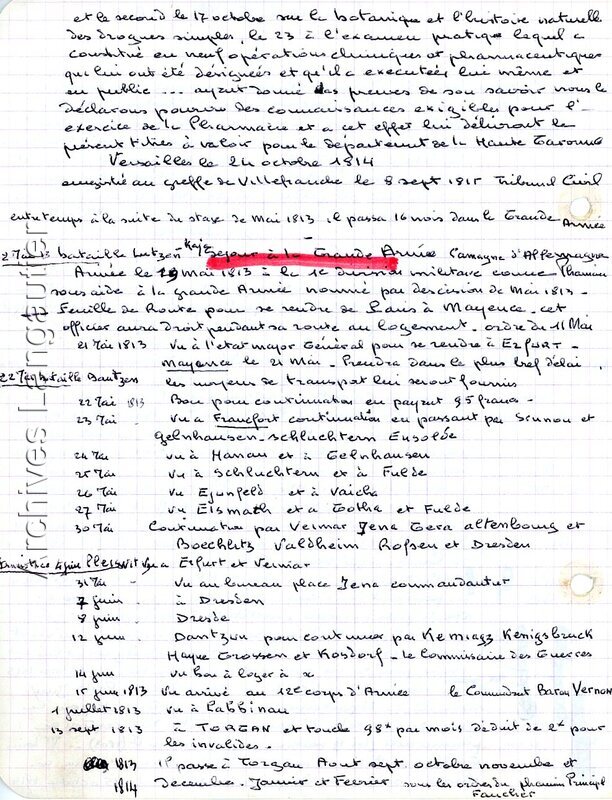 et le second le 17 octobre sur la botanique et l'histoire naturelle
des drogues simples, le 23 à l'examen pratique lequel a
constitué en neuf opérations chimiques et pharmaceutiques
qui lui ont été désignées et qu'il a executées lui même et
en public ... ayant donné des preuves de son savoir nous le
déclarons pourvu des connaissances exigibles pour l'
exercice de la Pharmacie et a cet effet lui délivrons le
présent titres à valoir pour le département de la Haute Garonne
Versailles le 24 octobre 1814
enregistré au greffe de Villefranche le 8 sept 1815 Tribunal Civil
entre temps à la suite du stage de Mai 1813, il passa 16 mois dans le Grande Armée
2 Mai 13 bataille Lutzen Séjour à la Grande Armée Campagne d'Allemagne
Armée le 19 mai 1813 à la 1e division militaire comme Pharmien
sous aide à la grande Armée nommé par descision de Mai 1813 -
Feuille de Route pour se rendre de Paris à Mayence - cet
officier aura droit pendant sa route au logement - ordre du 11 Mai
21 Mai 1813 Vu à l'etat major Général pour se rendre à Erfurt -
mayence le 21 Mai - Prendra dans le plus bref délai
22 Mai bataille Bautzen les moyens de transport lui seront fournis
22 Mai 1813 Bon pour continuation en payant 95 francs -
23 Mai vu a Francfort continuation en passant par
Gelnhausen - Schluchtern
24 Mai vu à Hanau et à Gelnhausen
25 Mai vu à Schluchtern et à Fulde
26 Mai vu et à Vaicha
27 Mai vu Eismath et a Gotha et Fulde
30 Mai Continuation par Veimar Jena Gera altenbourg et
Valdheim et Dresden
Pleiswit vu a Erfurt et Veimar
31 Mai vu au bureau place Jena commandantur
7 juin à Dresden
8 juin Dresde
12 juin pour continuer par Kenigsbruck
Hayne Grossen et Kosdorf - le Commissaire des Guerres
14 juin vu bon à loger à x
15 juin 1813 vu arrivé au 12e corps d'Armée le Commandant Baron Vernon
1 juillet 1813 vu à Labbinau
13 sept 1813 à TORGAN et touche 98# par mois déduit de 2# pour
les invalides.
1813 Il passe à Torgau Aout sept. octobre novembre et
1814 decembre - Janvier et Fevrier sous les ordres du pharmien Principal
Fauchier
Archives Langautier